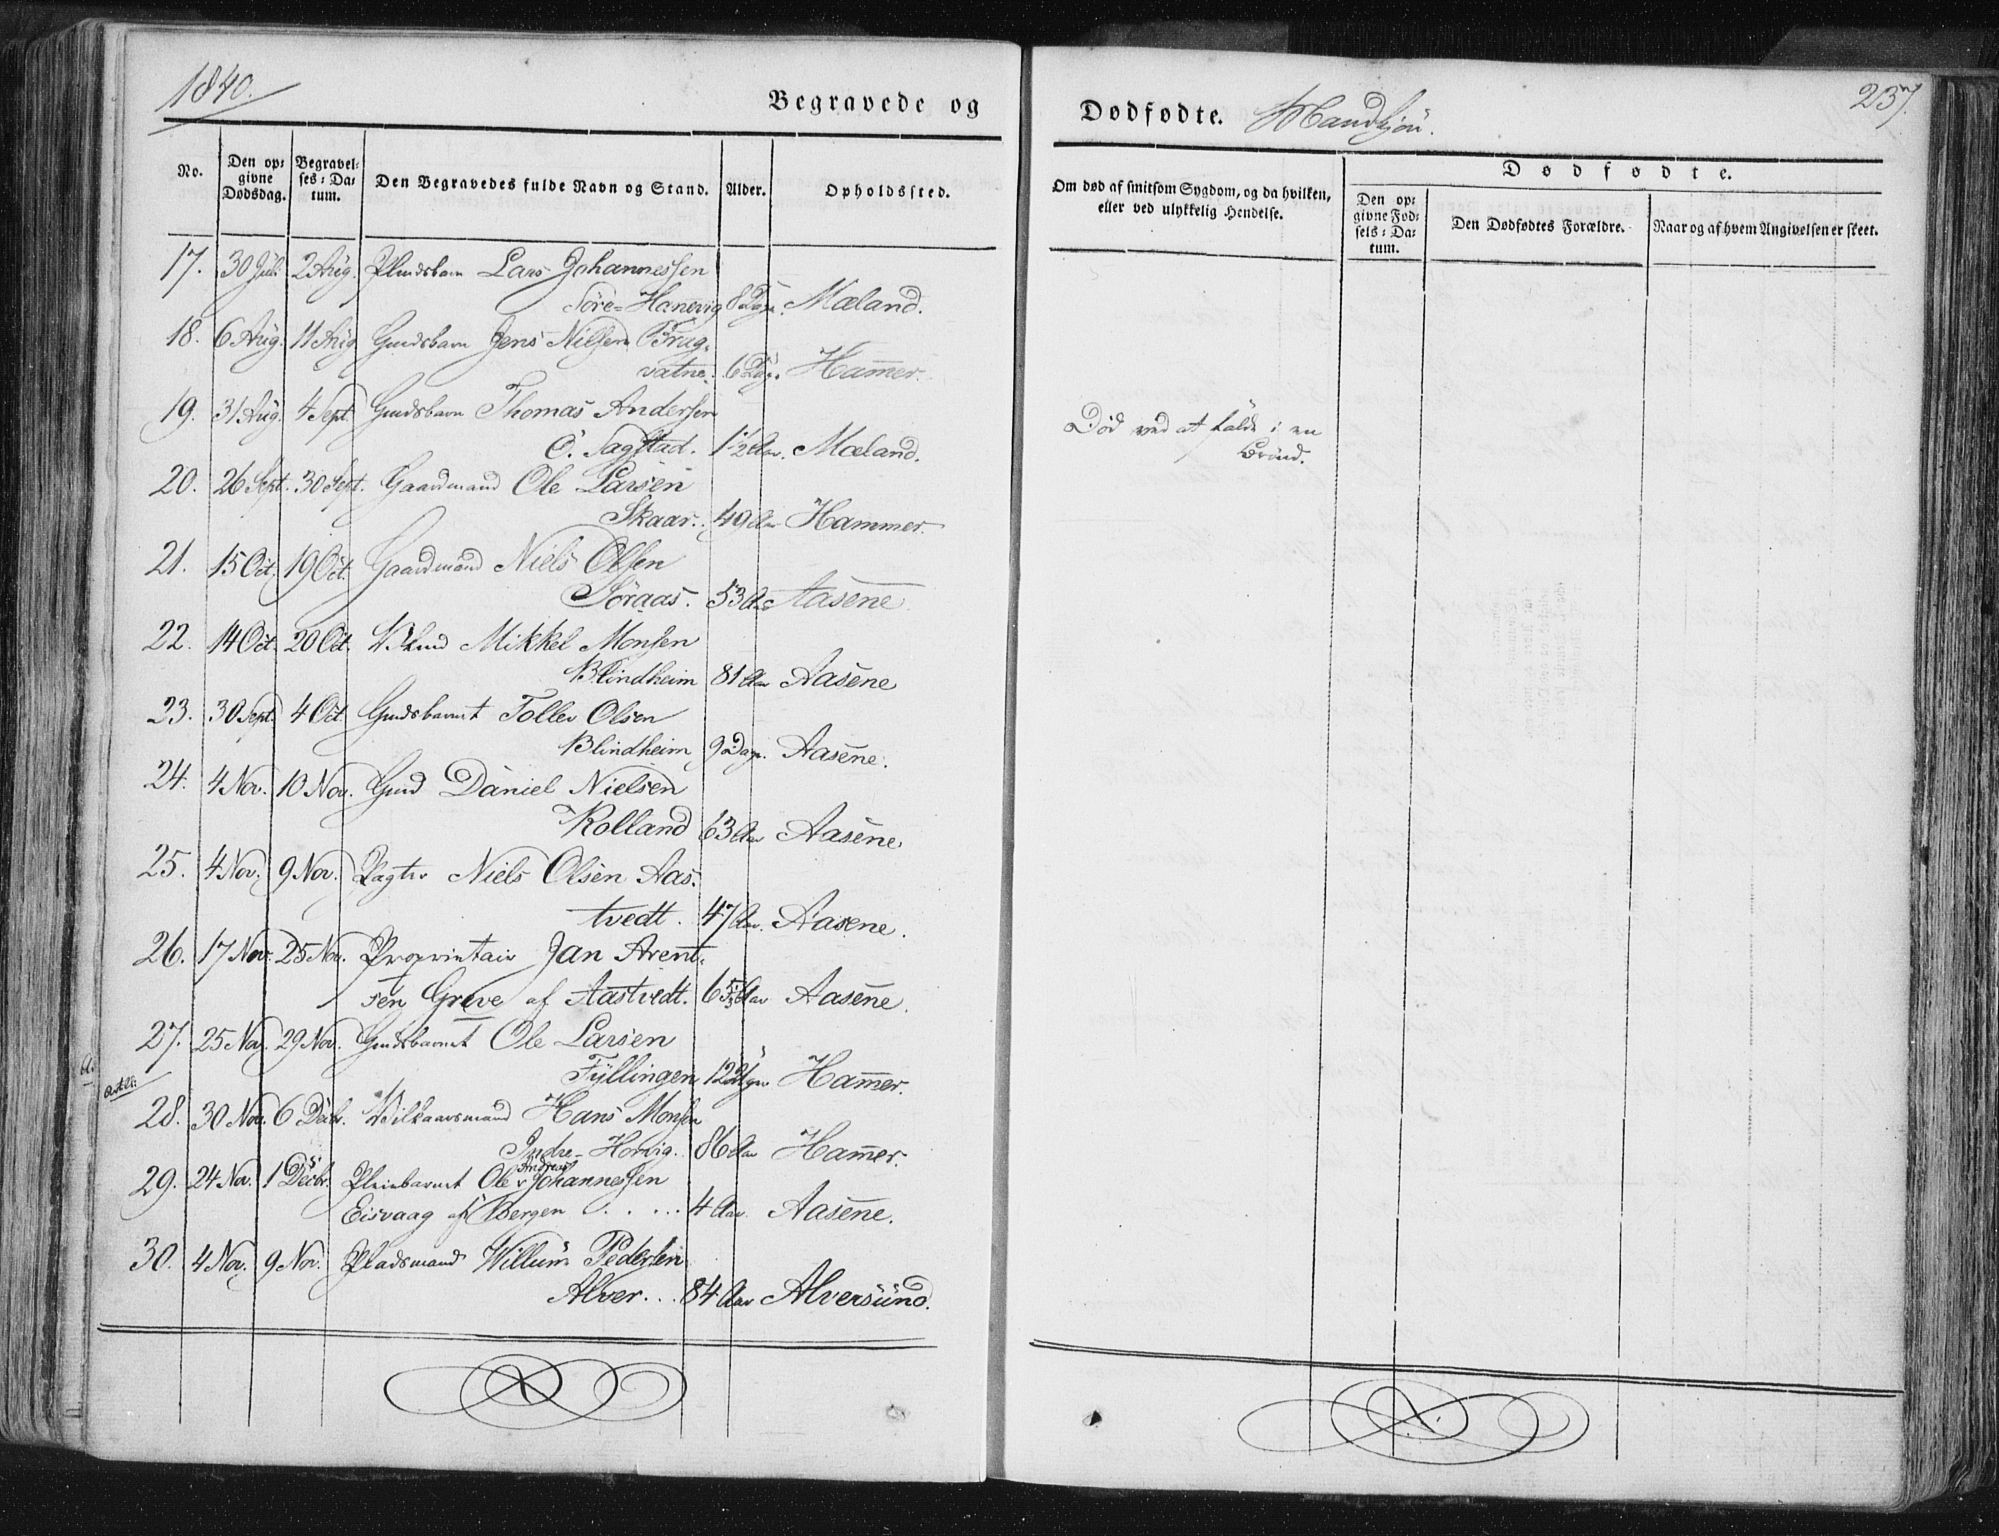 1840.
Begravede og
Dødfødte. Mandkjøn.
237.
No.
Den opgivne Dødsdag.
Begravelses-Datum.
Den Begravedes fulde Navn og Stand.
Alder.
Opholdssted.
Om død af smitsom Sygdom, og da hvilken, eller ved ulykkelig Hendelse.
Dødfødte.
Den opgivne Fødsels-Datum.
Den Dødfødtes Forældre.
Naar og af hvem Angivelsen er skeet.
17. 30 Juli 2 Aug. Pladsbarn Lars Johannessen
Søre-Hanevig 8 Dage. Mæland.
18. 6 Aug. 11 Aug. Gmdsbarn Jens Nilsen Brag-
vatne. 6 Dag. Ham̅er.
19. 31 Aug. 4 Sept. Gmdsbarn Thomas Andersen
Ö. Sagstad. 1½ Aar. Mæland.
Død ved at falde i en
Brönd.
20. 26 Sept. 30 Sept. Gaardmand Ole Larsen
Skaar. 49 Aar Hammer.
21. 15 Oct. 19 Oct. Gaardmand Niels Olsen
Söraas. 53 Aar Aasene
22. 14 Oct. 20 Oct. Mikkel Monsen
Blindheim 81 Aar Aasene
23. 30 Sept. 4 Oct Gmdsbarnet Toller Olsen
Blindheim 9 Dage. Aasene.
24. 4 Nov. 10 Nov. Gmd Daniel Nielsen
Rolland 63 Aar Aasene.
25. 4 Nov. 9 Nov. Pagter Niels Olsen Aas-
tvedt. 47 Aar. Aasene.
26. 17 Nov. 25 Nov. Proprietair Jan Arent-
sen Greve af Aastvedt. Aar Aasene.
27. 25 Nov. 29 Nov. Gmdsbarnet Ole Larsen
Fyllingen Ham̅er.
28. 30 Nov. 6 Decbr. Vilkaarsmand Hans Monsen
Indre-Horvig. 86 Aar Ham̅er.
29. 24 Nov. 1 Decbr. Pleiebarnet Ole Andreas Johannessen
Eisvaag af Bergen . . . . . 4 Aar. Aasene.
30. 4 Nov. 9 Nov. Pladsmand Willum Pedersen
Alver. . . 84 Aar Alversund.